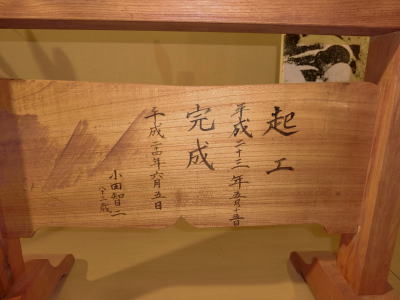 起工
平成二十三年五月十五日
完成
平成二十四年六月五日
小田智二
八十二歳